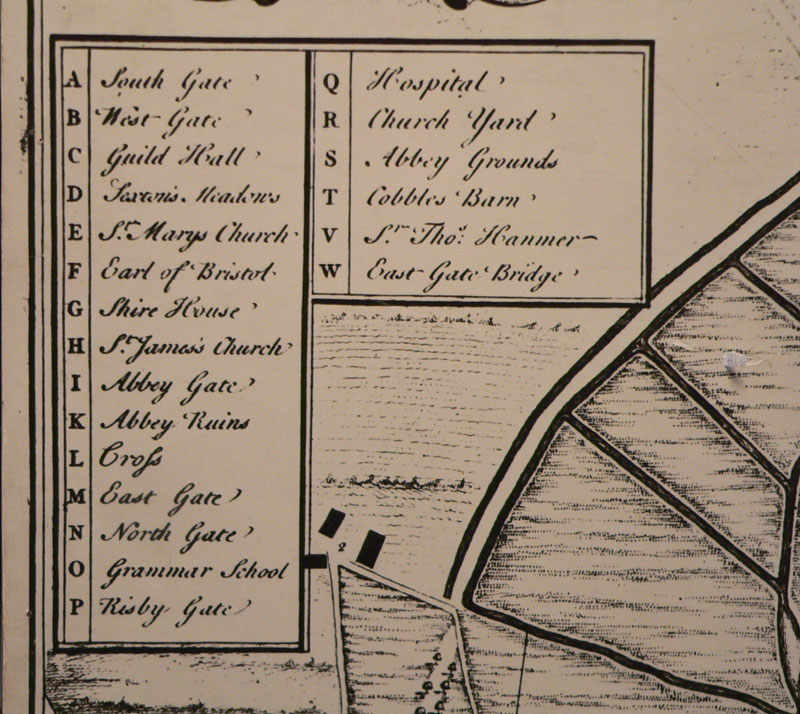 A South Gate
B West Gate
C Guild Hall
D Sexton's Meadows
E St. Marys Church
F Earl of Bristol
G Shire House
H St. James's Church
I Abbey Gate
K Abbey Ruins
L Croſs
M East Gate
N North Gate
O Grammar School
P Risby Gate
Q Hospital
R Church Yard
S Abbey Grounds
T Cobbles Barn
V Sr. Tho.s Hanmer
W East Gate Bridge
2